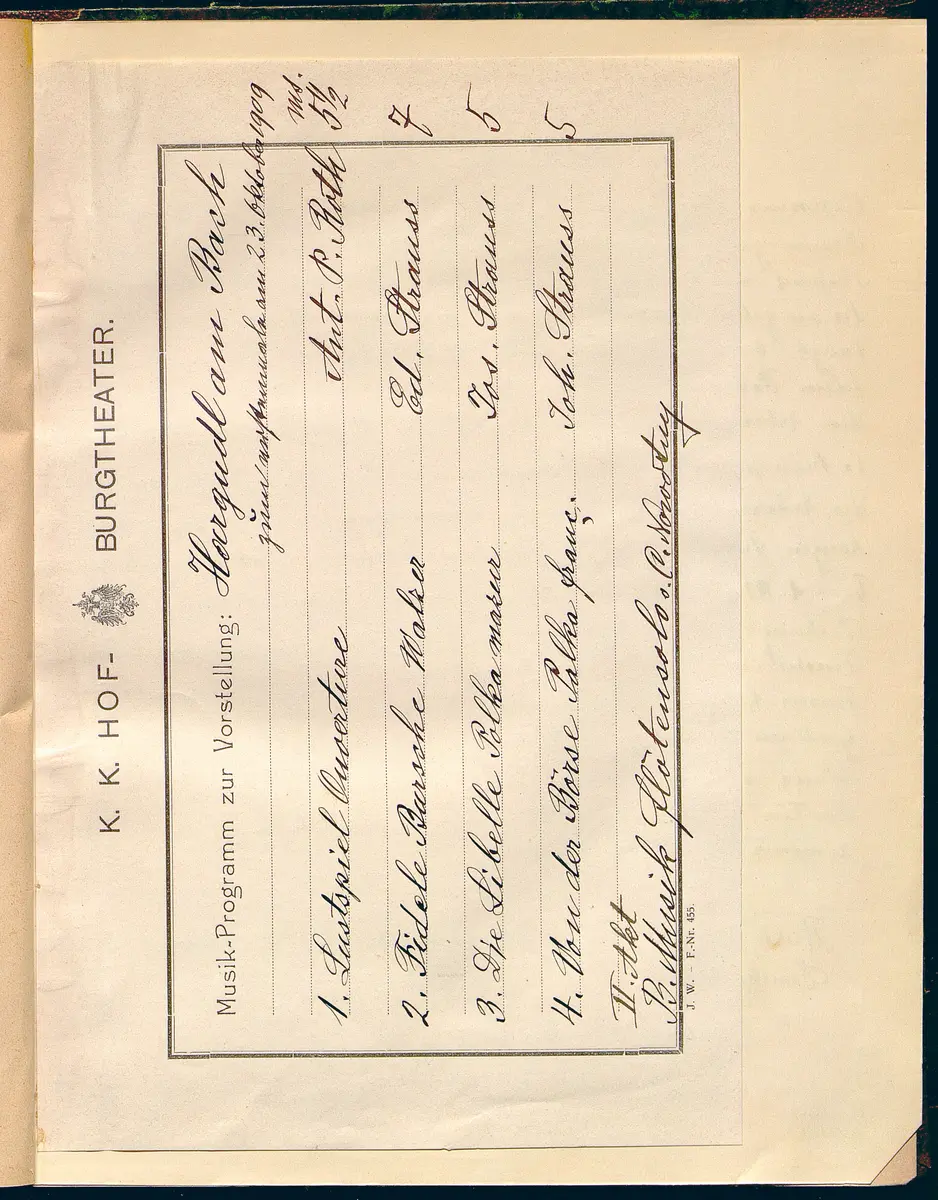 K. K. HOF- BURGTHEATER.
Musik-Programm zur Vorstellung: Hargudl am Bach
zum erstenmale am 23. Oktober 1909
ms.
1. Lustspiel Ouverture Ant. P. Roth 5 1/2
2. Fidele Bursche Walzer Ed. Strauss 7
3. Die Libelle Polka mazur Jos. Strauss 5
4. Von der Börse Polka franç. Joh. Strauss 5
II. Akt
B. Musik Flötensolo v. C. Nowotny
J. W. – F.-Nr. 455.